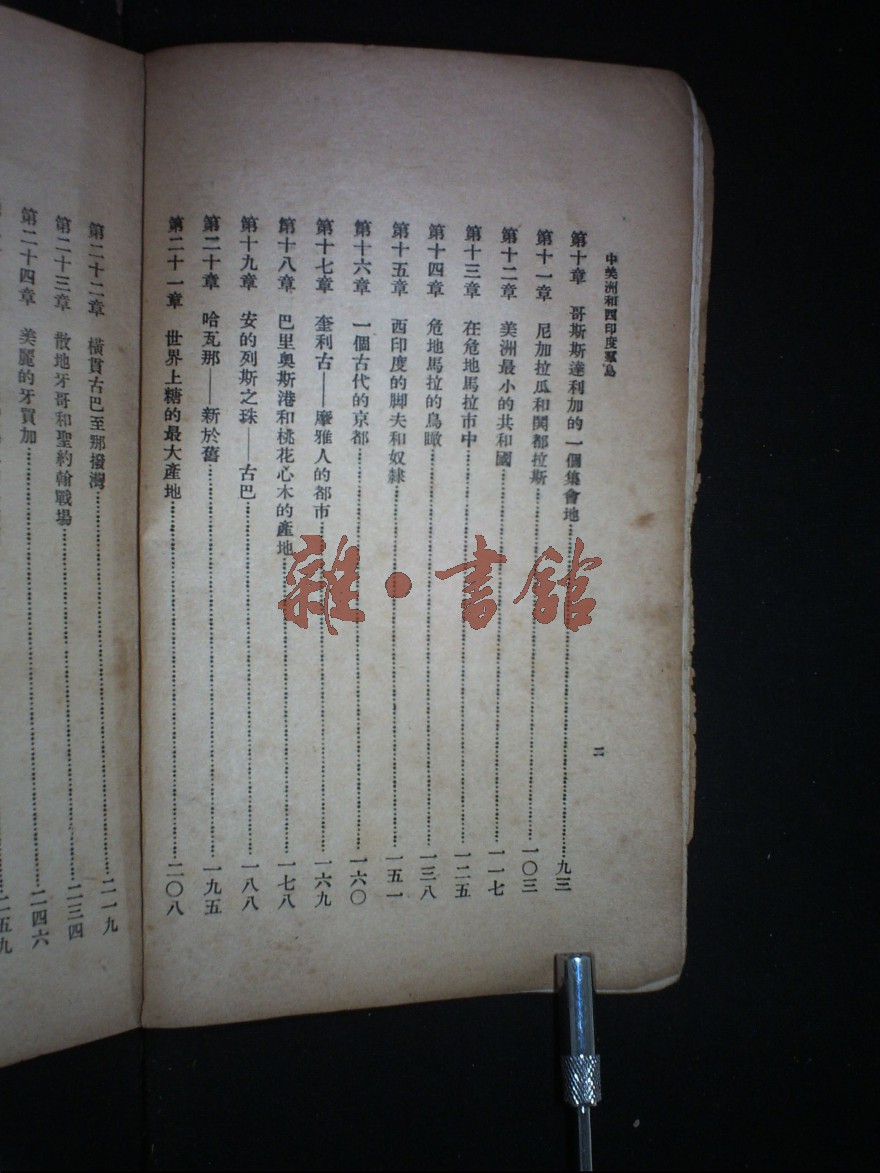 中美洲和西印度羣島
二
第十章 哥斯斯達利加的一個集會地……九三
第十一章 尼加拉瓜和閎都拉斯……一〇三
第十二章 美洲最小的共和國……一一七
第十三章 在危地馬拉市中……一二五
第十四章 危地馬拉的鳥瞰……一三八
第十五章 西印度的脚夫和奴隸……一五一
第十六章 一個古代的京都……一六〇
第十七章 奎利古——摩雅人的都市……一六九
第十八章 巴里奥斯港和桃花心木的產地……一七八
第十九章 安的列斯之珠——古巴……一八八
第二十章 哈瓦那——新於舊……一九五
第二十一章 世界上糖的最大產地……二〇八
第二十二章 橫貫古巴至那撥灣……二一九
第二十三章 散地牙哥和聖約翰戰場……二三四
第二十四章 美麗的牙買加……二四六
二五九
雜·書館